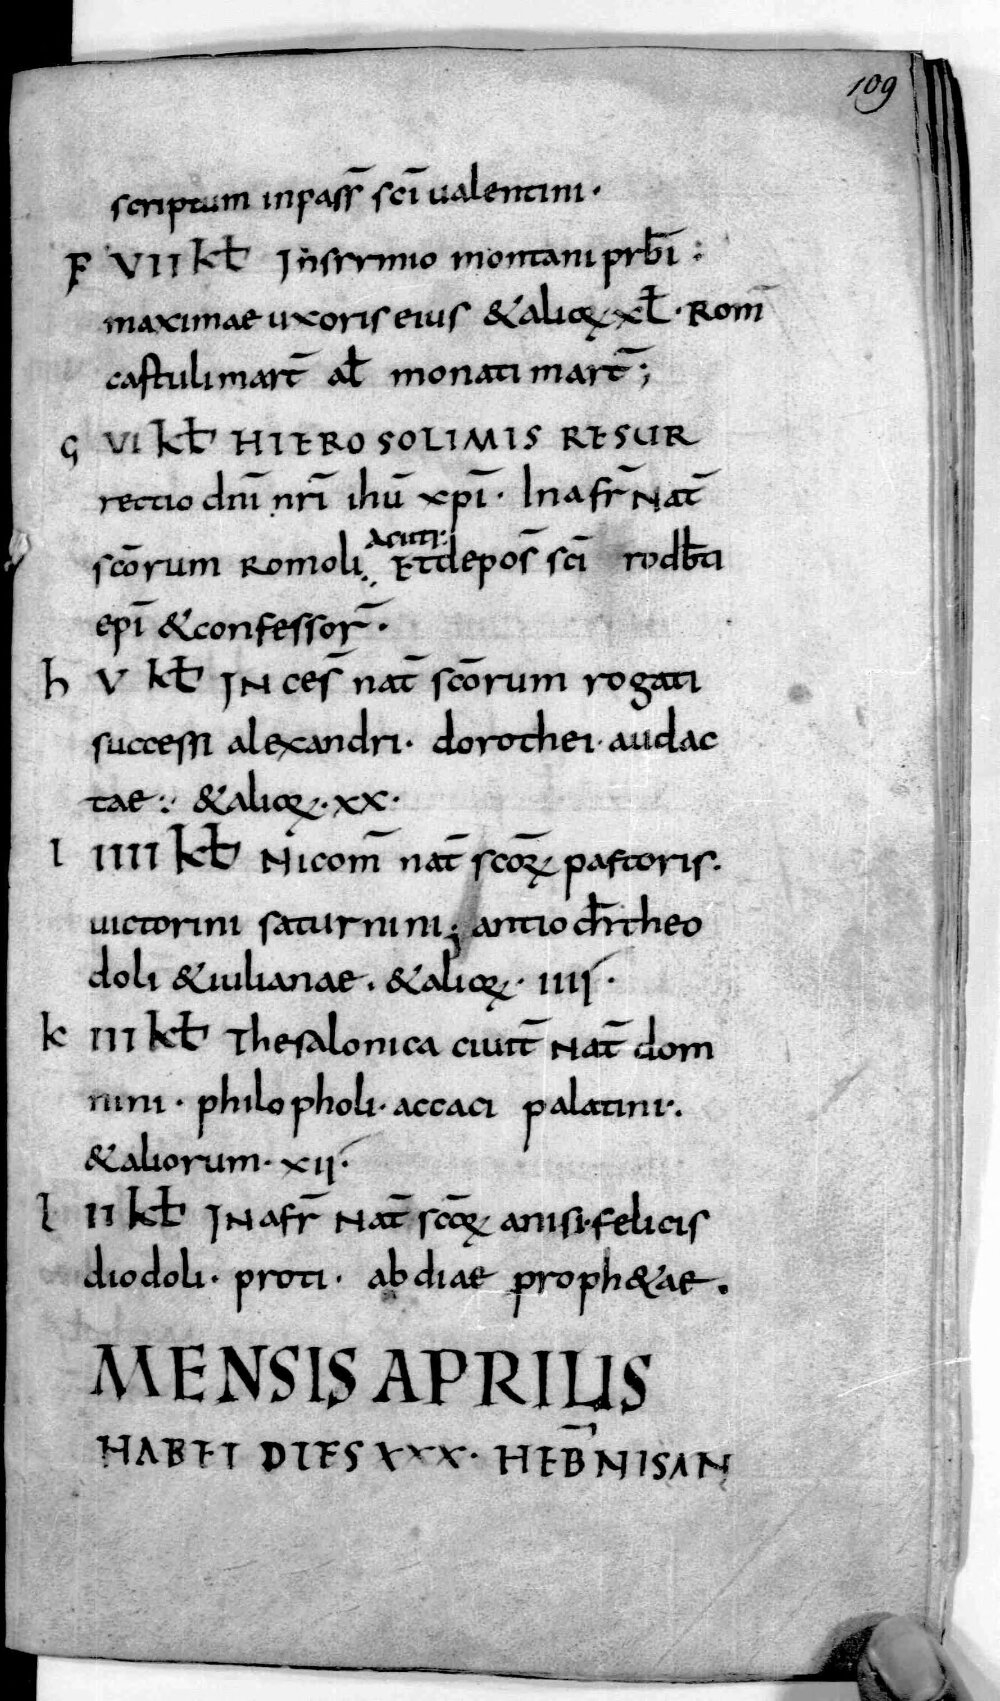 109
scriptum inpass̄ sc̄i ualentini·
F VII kł Insirmio montani prb̄i :
maximae uxoris eius &alioꝝ·xł· Rom̄
castuli mart̄ ał monati mart̄;
G VI kł HIEROSOLIMIS RESUR
rectio dn̄i nr̄i ihū xp̄i· Inafr̄ Nat̄
sc̄orum Romoli acuti: ET depos̄ sc̄i rodb̄ti
ep̄i &confessor̄·
h V kł IN ces̄ nat̄ sc̄orum rogati
successi alexandri· dorothei· audac
tae: &alioꝝ· xx·
I IIII kł Nicom̄ nat̄ sc̄oꝝ pastoris·
uictorini saturnini; antioch̄ theo
doli &iulianae. &alioꝝ· IIII·
K III kł Thesalonica ciuit̄ Nat̄ dom
nini· philopholi· accaci palatini·.
&aliorum· xii·
l II kł IN afr̄ Nat̄ sc̄oꝝ anisi·felicis
diodoli· proti· abdiae proph&ae.
MENSIS APRILIS
HABET DIES XXX· HEB̄ NISAN